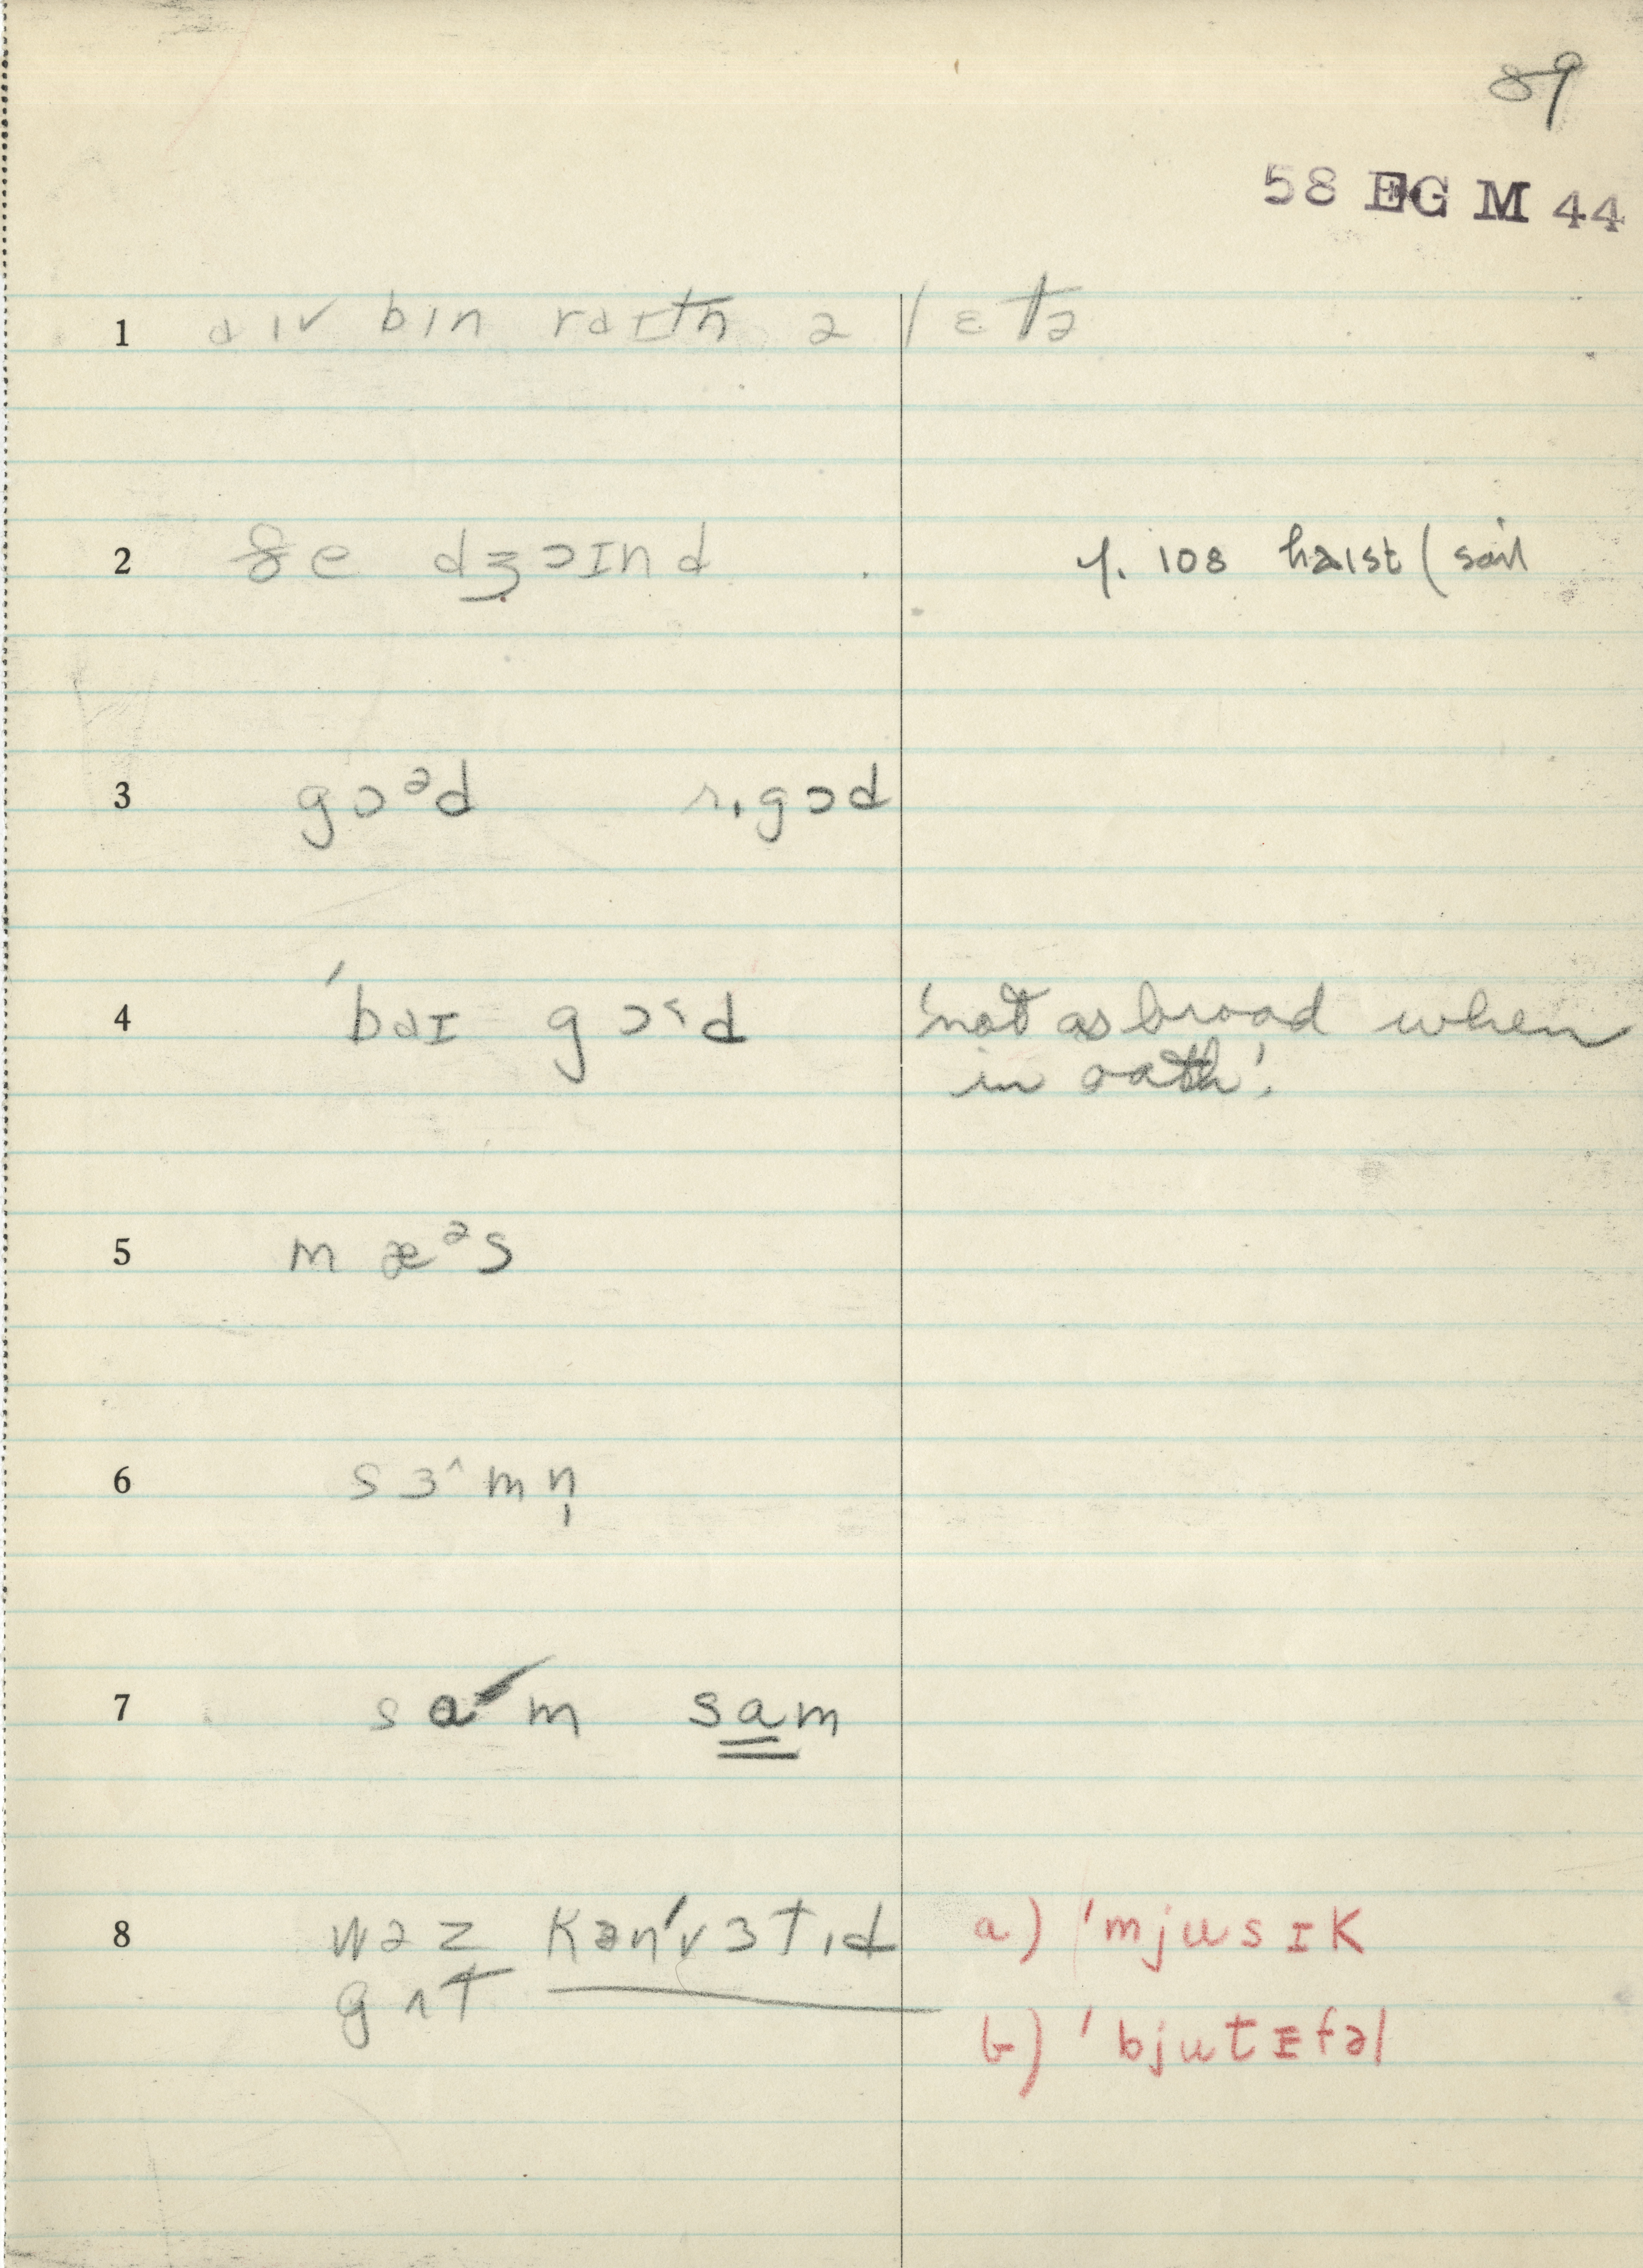 89
58 EG M 44
1 aɪv bɪn raɪtn ə lɛtə
2 ðe dʒɔɪnd ɤ. 108 haɪst (sail
3 gɔᵊd r. gɔd
4 ˈbaɪ gɔ˂d 'not as broad when
in oath'.
5 m æᵊs
6 sɜ^mn̩
7 sa m sam
8 wəz kənˈvɜtɪd a) ˈmjusɪk
gʌt b) ˈbjutɪfəl